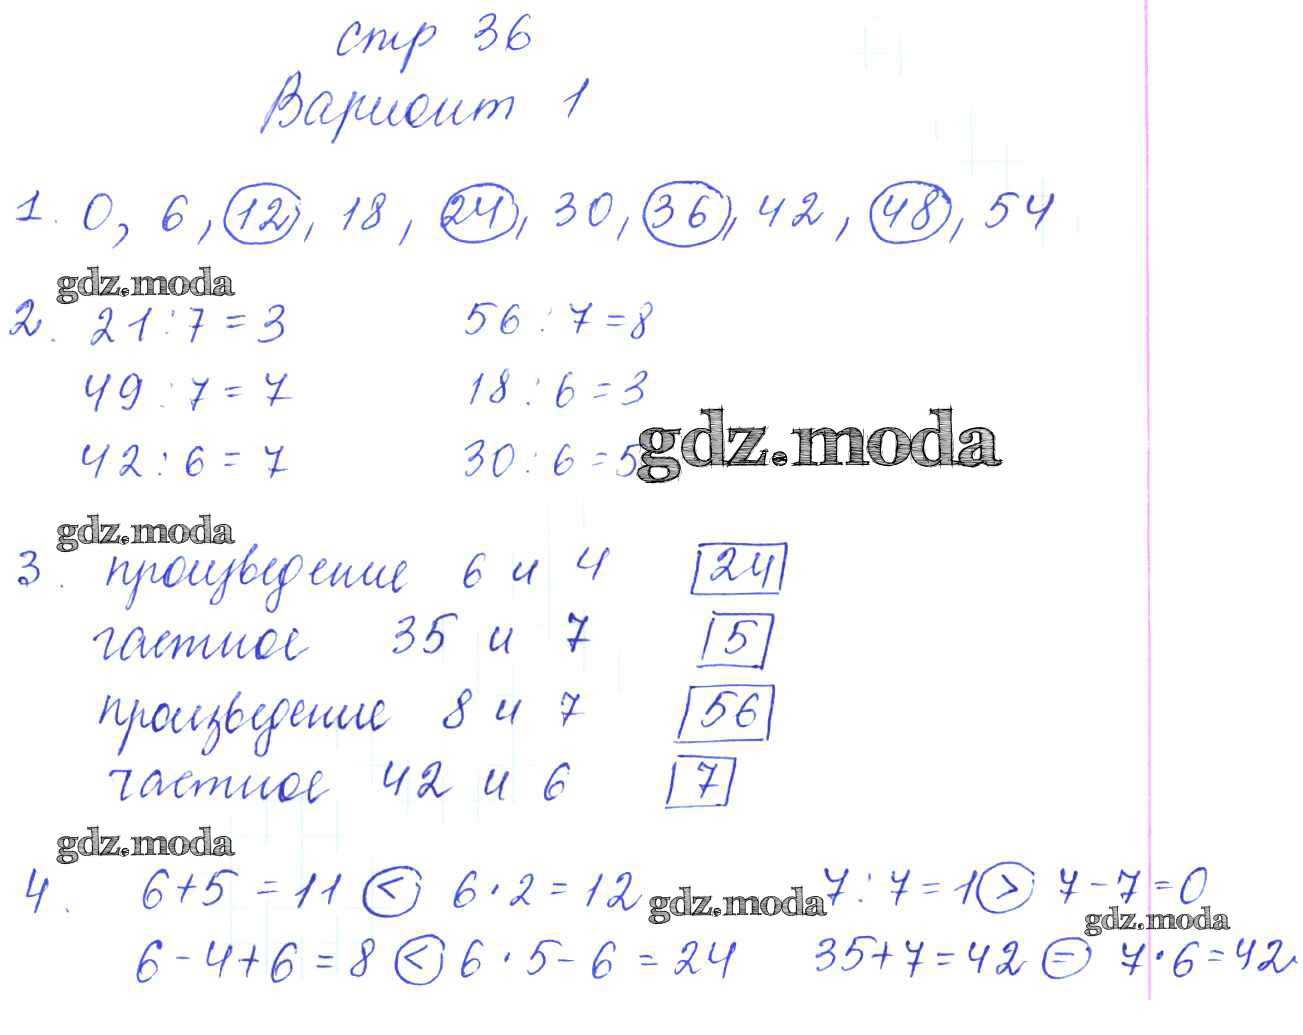 стр 36
Вариант 1
1. 0, 6, 12, 18, 24, 30, 36, 42, 48, 54
gdz.moda
2. 21 : 7 = 3 56 : 7 = 8
49 : 7 = 7 18 : 6 = 3
gdz.moda
42 : 6 = 7 30 : 6 = 5
gdz.moda
3. произведение 6 и 4 24
частное 35 и 7 5
произведение 8 и 7 56
частное 42 и 6 7
gdz.moda
4. 6 + 5 = 11 < 6 · 2 = 12 7 : 7 = 1 > 7 - 7 = 0
gdz.moda
gdz.moda
6 - 4 + 6 = 8 < 6 · 5 - 6 = 24 35 + 7 = 42 = 7 · 6 = 42